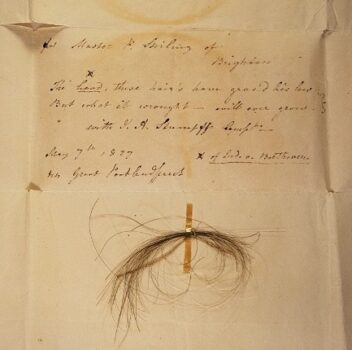 for Master P. Stirling of
Brighton
The head, these hair's have grac'd lies low
But what it wrought – will ever grow.
with J. A. Stumpff Compts
May 7th 1827
44 Great Portland Street
x of Ludw. v. Beethoven